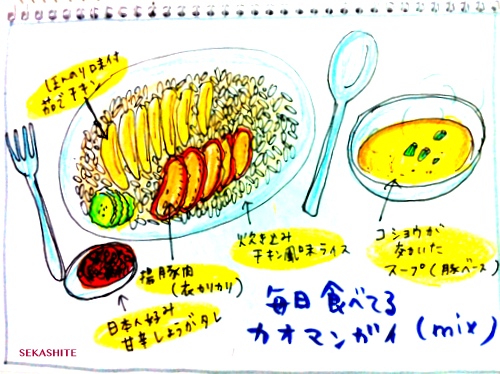 ほんのり味付
茹でチキン
炊き込み
チキン風味ライス
コショウが
効いた
スープ(豚ベース)
揚豚肉
(衣カリカリ)
日本人好み
甘辛しょうがタレ
毎日食べてる
カオマンガイ(mix)
SEKASHITE